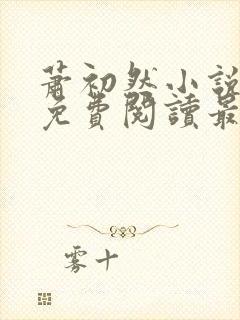 蕭初然小說
免費閱讀最
雾十